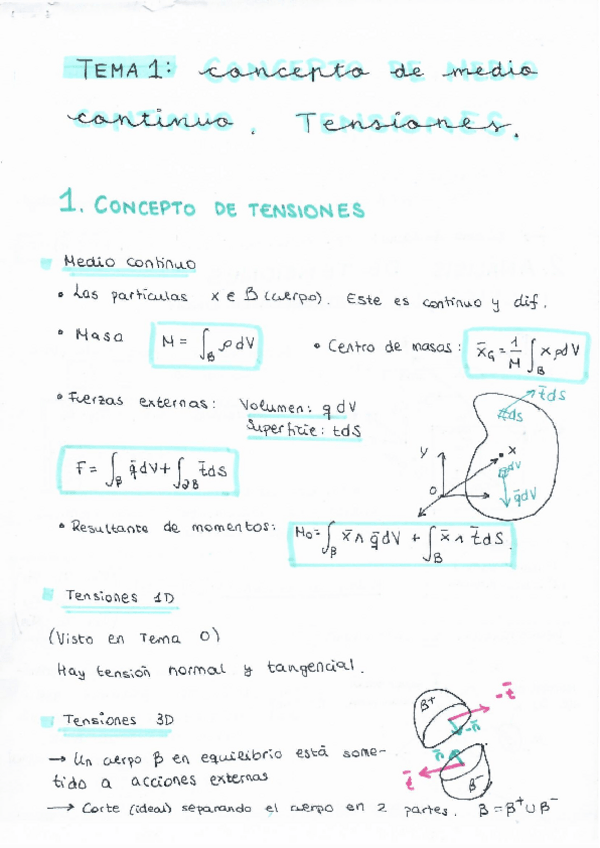 TEMA 1: concepto de medio
continuo. Tensiones.
1. CONCEPTO DE TENSIONES
Medio continuo
• Las partículas x ∈ B (cuerpo). Este es continuo y dif.
• Masa M = ∫_B ρ dV • Centro de masas: x̄_G = 1/M ∫_B x ρ dV
• Fuerzas externas: Volumen: q dV
Superficie: t dS
F = ∫_B q̄ dV + ∫_∂B t̄ dS
t̄ dS
dS
Y
x
dV
O
q̄ dV
• Resultante de momentos: M_O = ∫_B x̄ ∧ q̄ dV + ∫_B x̄ ∧ t̄ dS
Tensiones 1D
(Visto en Tema 0)
Hay tensión normal y tangencial.
Tensiones 3D
B⁺ -t̄
-n̄
→ Un cuerpo B en equilibrio está some-
tido a acciones externas
n̄
t̄ B⁻
→ Corte (ideal) separando el cuerpo en 2 partes. B = B⁺ ∪ B⁻